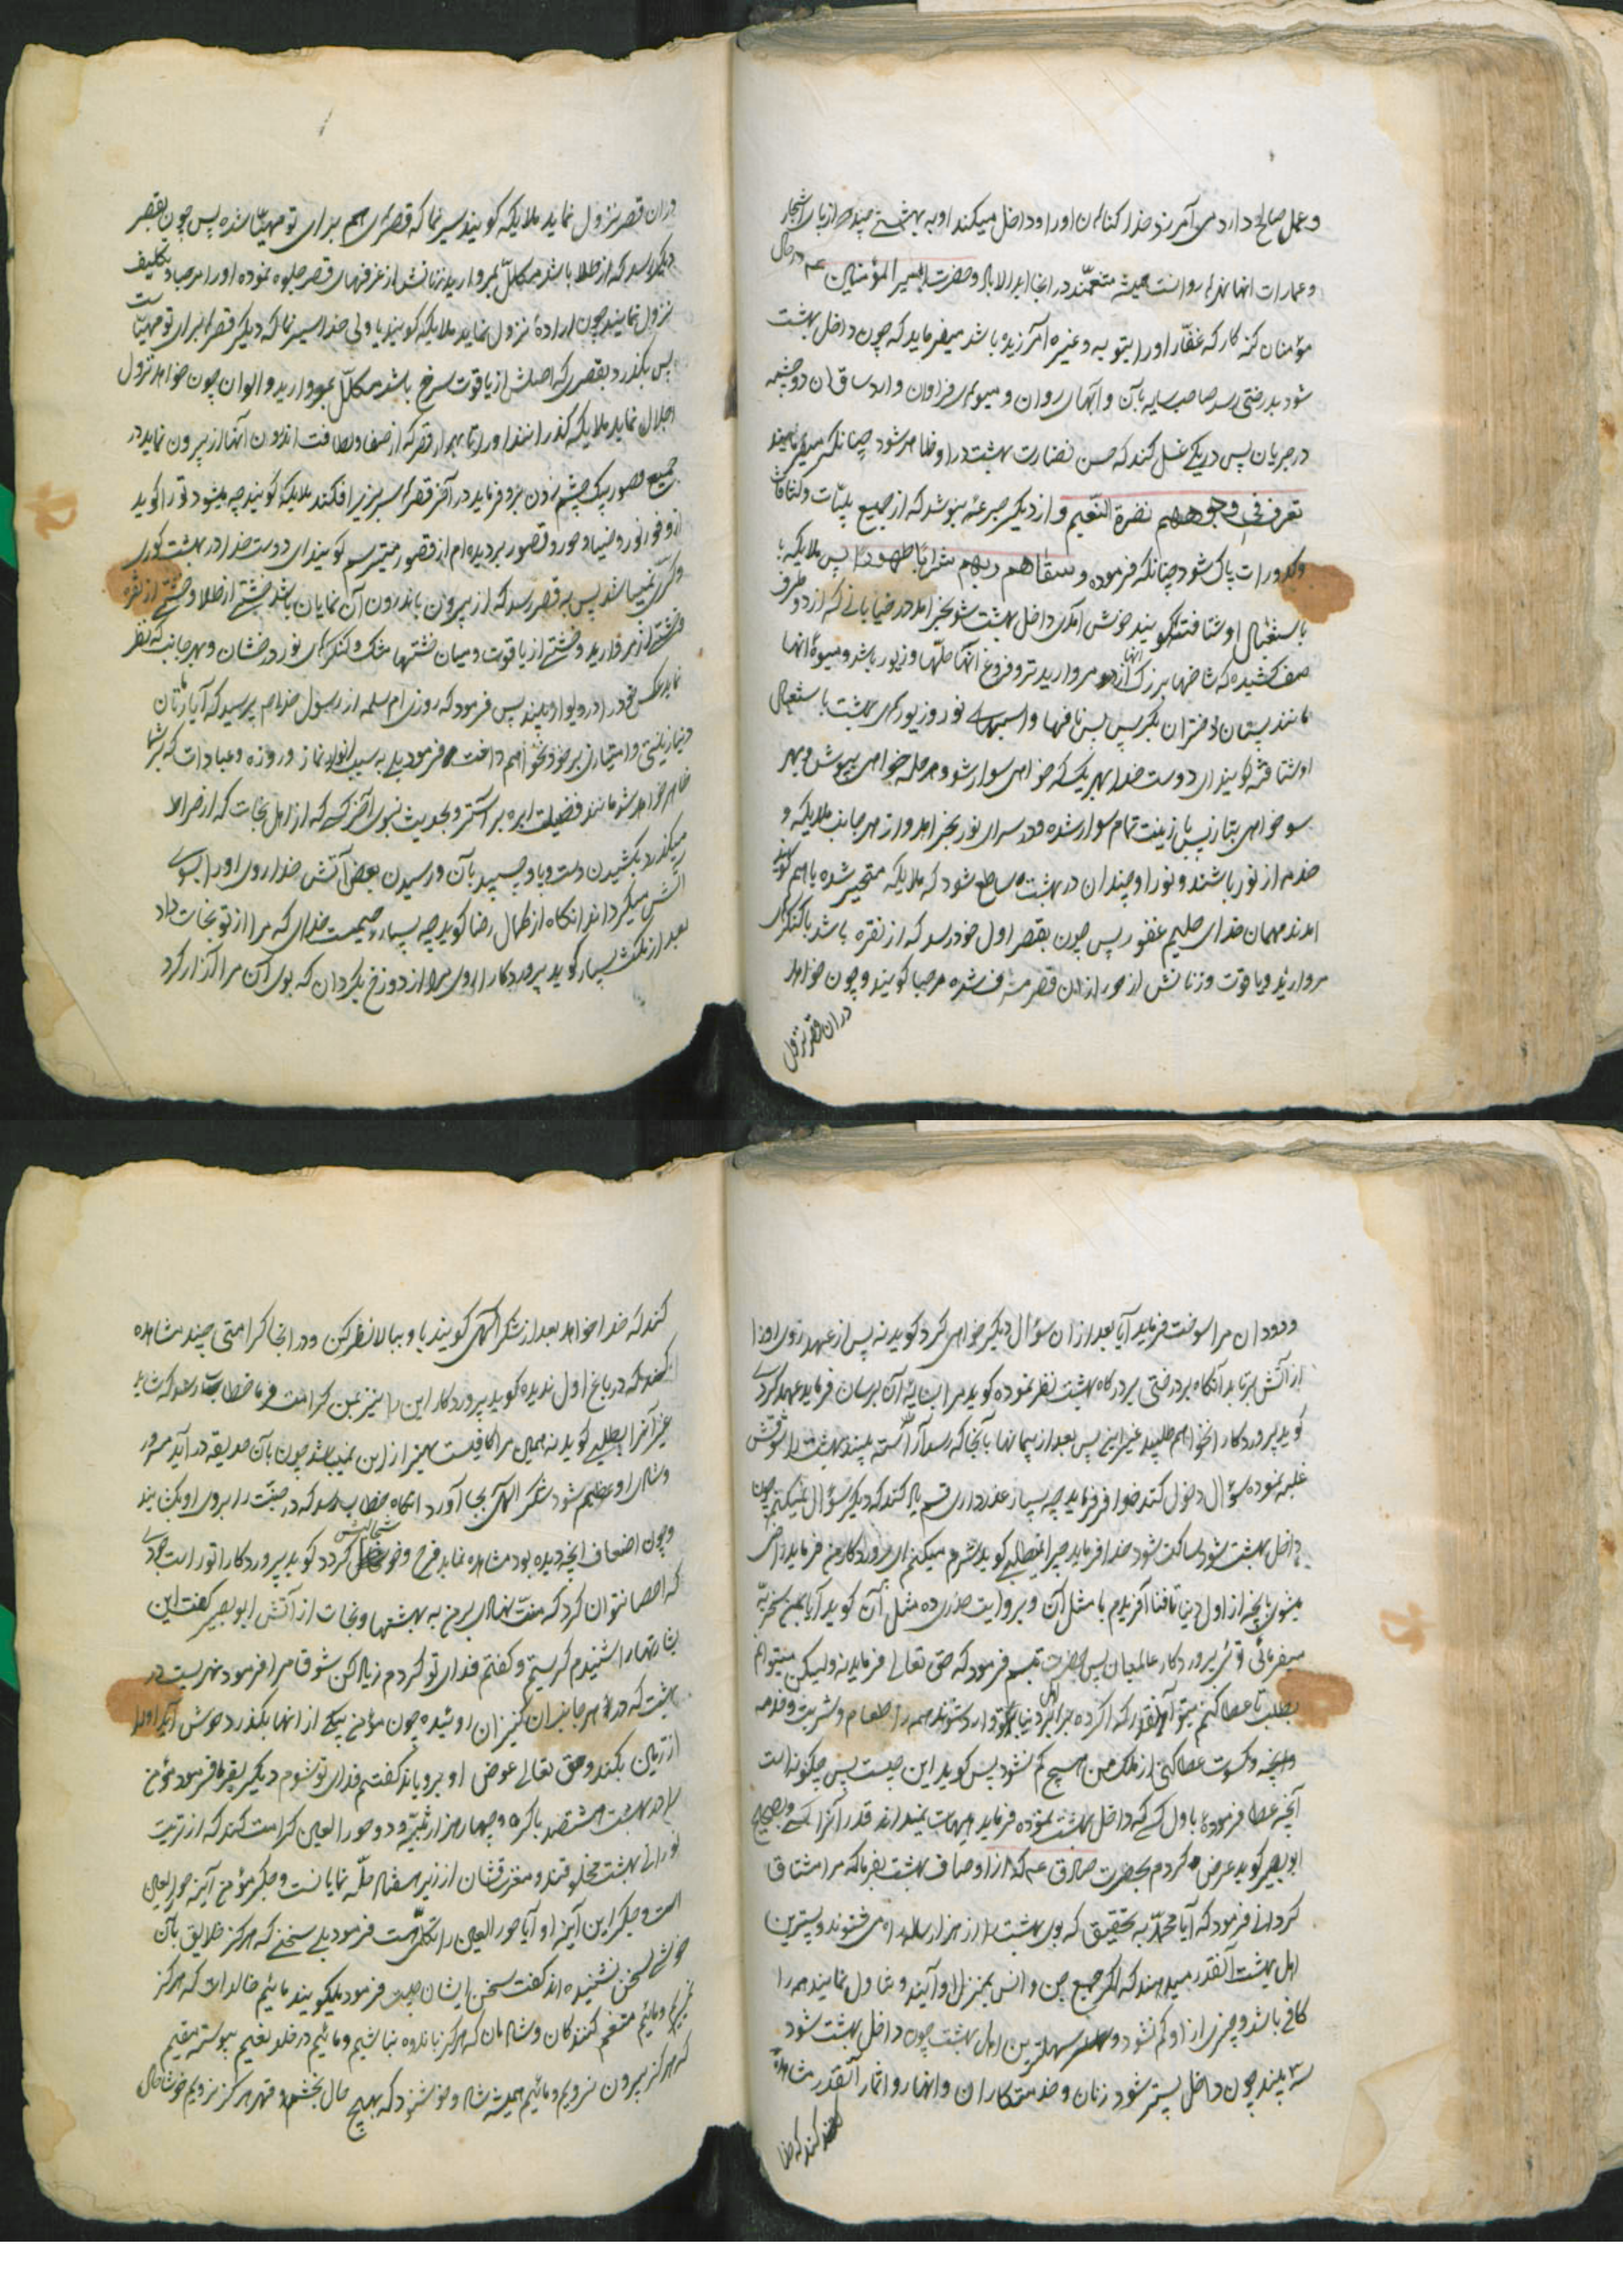 و عمل صالح دارد می آمرزد خدا کناهان اورا و داخل میکند او به بهشتی چند که از پای اشجار
و عمارات آنها نهرها روانست همیشه متنعمند در آنجا ابدالآباد و حضرت امیر المؤمنین عم در حال
مؤمنان کنه کار که غفار اورا بتوبه و غیره آمرزیده باشد میفرماید که چون داخل بهشت
شود بدرختی رسد صاحب سایه با آن و آبهای روان و میوهای فراوان و از ساق آن دو چشمه
در جریان پس در یکی غسل کند که حسن نضارت بهشت در او ظاهر شود چنانکه میفرماید
تعرف فی وجوههم نضرة النعیم و از دیکر جرعه بنوشد که از جمیع بلیات و کثافات
و کدورات پاک شود چنانکه فرموده و سقاهم ربهم شرابا طهورا پس ملایکه با
باستقبال او شتافته کویند خوش آمدی داخل بهشت شو بخرامد در خیابانی که از دو طرف
صف کشیده که شاخها بزرک آنها از مروارید تر و فروع آنها حلها و زیور باشد و میوۀ آنها
مانند پستان دختران بکر پس پس ناقها و اسبهای نور و زیورهای بهشت باستقبال
او شتافته کویند ای دوست خدا بهر یک که خواهی سوار شو و هر حله خواهی بپوش و بهر
سو خواهی بتاز پس با زینت تمام سوار شده و در سرای نور بخرامد و از هر جانب ملایکه و
خدم از نور باشند و نور او چندان در بهشت ساطع شود که ملایکه متحیر شده باهم کویند
آمد مهمان خدای حلیم غفور پس چون بقصر اول خود رسد که از نقره باشد با کنکرهای
مروارید و یاقوت و زنانش از حور از آن قصر مشرف شده مرحبا کویند و چون خواهد
در آن قصر نزول
در آن قصر نزول نماید ملایکه کویند سیر نما که قصرهای هم برای تو مهیا شده پس چون بقصر
دیکر رسد که از طلا باشد مکلل بمروارید زنانش از غرفهای قصر جلوه نموده اورا مرحبا و تکلیف
نزول نمایند چون ارادۀ نزول نماید ملایکه کویند یا ولی خدا سیر نما که دیکر قصرها برای تو مهیاست
پس بکذرد بقصری که اصلش از یاقوت سرخ باشد مکلل بمروارید و الوان چون خواهد نزول
اجلال نماید ملایکه کذرانند اورا تا بهزار قصر که از صفا و لطافت اندرون آنها از بیرون نماید در
جمیع قصور بیک چشم زدن مرور فرماید در آخر قصرها سر بزیر افکند ملایکه کویند چه میشود تو را کوید
از وفور نور و ضیا و حور و قصور بریده ام از قصور میترسم کویند ای دوست خدا در بهشت کوری
و کری نمیباشد پس به قصر رسد که از بیرون باندرون آن نمایان باشد خشتی از طلا و خشتی از نقره
خشتی از مروارید و خشتی از یاقوت و میان خشتها مشک و کنکرهای نور درخشان و بهر جانب که نظر
نماید عکس خود را در دیوار او بیند پس فرمود که روزی ام سلمه از رسول خدا صم پرسید که آیا زنان
دنیا زینتی و امتیازی بر حور نخواهم داشت فرمود بلی به سبب نور نماز و روزه و عبادات که بر شما
ظاهر خواهد شد مانند فضیلت ابره بر آستر و بحدیث نبوی آخر کسی که از اهل نجات که از صراط
میکذرد بکشیدن دست و پا و چسپیدن بآن و رسیدن بعض آتش خدا روی اورا بسوی
آتش میکرداند آنکاه از کمال رضا کوید چه بسیار رحیمست خدای که مرا از تو نجات داد
بعد از مکث بسیار کوید پروردکارا روی مرا از دوزخ بکردان که بوی آن مرا آزار کرد
و دود آن مرا سوخت فرماید آیا بعد از آن سؤال دیکر خواهی کرد کوید نه پس از عهد روی اورا
از آتش برتابد آنکاه بدرختی بر درکاه بهشت نظر نموده کوید مرا بسایۀ آن برسان فرماید عهد کردی
کوید پروردکارا نخواهم طلبید غیر این پس بعد از پیمانها بآنجا که رسد آراسته بیند بهشت را شوقش
غلبه نموده سؤال دخول کند خدا فرماید چه بسیار عذر داری قسم یاد کند که دیکر سؤال نمیکنم چون
داخل بهشت شود ساکت شود خدا فرماید چرا نمیطلبی کوید شرم میکنم ای پروردکار من فرماید راضی
میشوی بآنچه از اول دنیا تا فنا آفریدم با مثل آن و بروایت صدری ده مثل آن کوید آیا بمن سخریه
میفرمائی و توئی پروردکار عالمیان پس حضرت تبسم فرمود که حق تعالی فرماید نه ولیکن میتوانم
بطلب تا عطا کنم میتوانم آنقدر که اکر ده برابر اهل دنیا بر تو وارد شوند همه را طعام و شربت و خدمه
و آنچه و کسوت عطا کنی از ملک من هیچ کم نشود پس کوید این چیست پس چکونه است
آنچه عطا فرمودۀ باول کسی که داخل بهشت نموده فرماید هیهات نمیداند قدر آنرا کسی و بصحیح
ابو بصیر کوید عرض کردم بحضرت صادق عم که از اوصاف بهشت بفرما که مرا مشتاق
کردانی فرمود که آیا محمد به تحقیق که بوی بهشت را از هزار ساله راه می شنوند و پسترین
اهل بهشت آنقدر میدهند که اکر جمیع جن و انس بمنزل او آیند و تناول نمایند همه را
کافی باشد و چیزی از او کم نشود و سهلترین اهل بهشت چون داخل بهشت شود
سه باغ بیند چون داخل پستتر شود زنان و خدمتکاران و انهار و اثمار آنقدر مشاهده
کند که خدا
کند که خدا خواهد بعد از شکر الهی کویند باو ببالا نظر کن و در آنجا کرامتی چند مشاهده
کند که در باغ اول ندیده کوید پروردکارا این را نیز بمن کرامت فرما خطاب رسد که شاید
غیر آنرا بطلبی کوید نه همین مرا کافیست بهتر از این نمیباشد چون بآن حدیقه در آید سرور
و شادی او عظیم شود شکر الهی بجا آورد آنکاه خطاب رسد که در جنت را بروی او بکشایند
و چون اضعاف آنچه دیده بود مشاهده نماید فرح و خوشحالیش کردد کوید پروردکارا تو راست حمدی
که احصا نتوان کرد که منت نهادی بر من به بهشتها و نجات از آتش ابو بصیر کفت این
بشارتها را شنیدم کریستم و کفتم فدای تو کردم زیاد کن شوق مرا فرمود نهریست در
بهشت که در هر جانب آن کنیزان روئیده چون مؤمن بیکی از آنها بکذرد خوش آید اورا
از زمین بکند و حق تعالی عوض او برویاند کفتم فدای تو شوم دیکر بفرما فرمود مؤمن
را در بهشت هشتصد باکره و چهار هزار ثیبه و دو حور العین کرامت کند که از تربت
نورانی بهشت مخلوقند و مغز ساقشان از زیر هفتاد حله نمایانست و جکر مؤمن آینه حور العین
است و جکر این آینه او آیا حور العین را تکلمی هست فرمود بلی سخنی که هرکز خلایق بآن
خوشی سخن نشنیده اند کفت سخن ایشان چیست فرمود میکویند مائیم خالدات که هرکز
نمیریم و مائیم متنعم کنندکان و شادمان که هرکز باندوه نباشیم و مائیم در خلد نعیم پیوسته مقیم
که هرکز بیرون نرویم و مائیم همیشه شاد و خوشنود که بهیچ حال بخشم و قهر هرکز نرویم خوشا حال